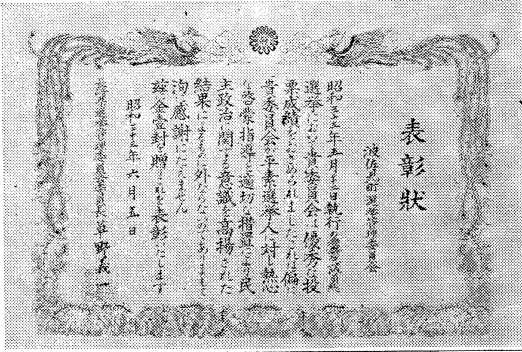 表彰状
波佐見町選挙管理委員会
昭和三十三年五月二十二日執行の衆議院議員
選挙において貴委員会は優秀な投
票成績をおさめられましたこれは偏に
貴委員会が平素選挙人に対し熱心
な啓蒙指導と適切な措置により民
主政治に関する意識を高揚された
結果によるもの外ならないのでありまして
洵に感謝にたえません
茲に金壱封を贈りこれを表彰いたします
昭和三十三年六月五日
長崎県選挙管理委員会委員長 草野義一